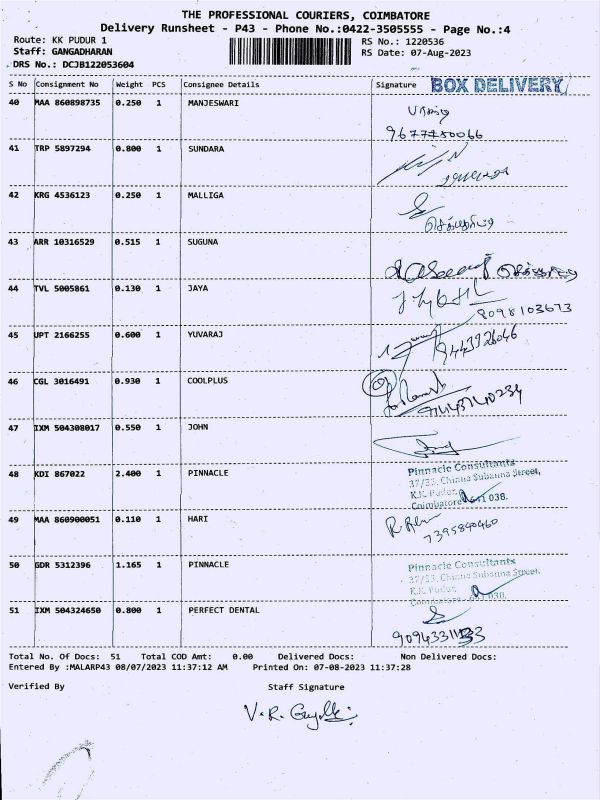 THE PROFESSIONAL COURIERS, COIMBATORE
Delivery Runsheet - P43 - Phone No.:0422-3505555 - Page No.:4
Route: KK PUDUR 1 RS No.: 1220536
Staff: GANGADHARAN RS Date: 07-Aug-2023
DRS No.: DCJB122053604
S No Consignment No Weight PCS Consignee Details Signature BOX DELIVERY
40 MAA 860898735 0.250 1 MANJESWARI
9677750066
41 TRP 5897294 0.800 1 SUNDARA
42 KRG 4536123 0.250 1 MALLIGA
43 ARR 10316529 0.515 1 SUGUNA
44 TVL 5005861 0.130 1 JAYA
8098103673
45 UPT 2166255 0.600 1 YUVARAJ
9443926046
46 CGL 3016491 0.930 1 COOLPLUS
47 IXM 504308017 0.550 1 JOHN
48 KDI 867022 2.400 1 PINNACLE Pinnacle Consultants
37/53, Chinna Subanna Street,
K.K. Pudur,
Coimbatore 641 038.
49 MAA 860900051 0.110 1 HARI
7395840460
50 GDR 5312396 1.165 1 PINNACLE Pinnacle Consultants
37/53, Chinna Subanna Street,
K.K. Pudur,
Coimbatore 641 038.
51 IXM 504324650 0.800 1 PERFECT DENTAL
Total No. Of Docs: 51 Total COD Amt: 0.00 Delivered Docs: Non Delivered Docs:
Entered By :MALARP43 08/07/2023 11:37:12 AM Printed On: 07-08-2023 11:37:28
Verified By Staff Signature